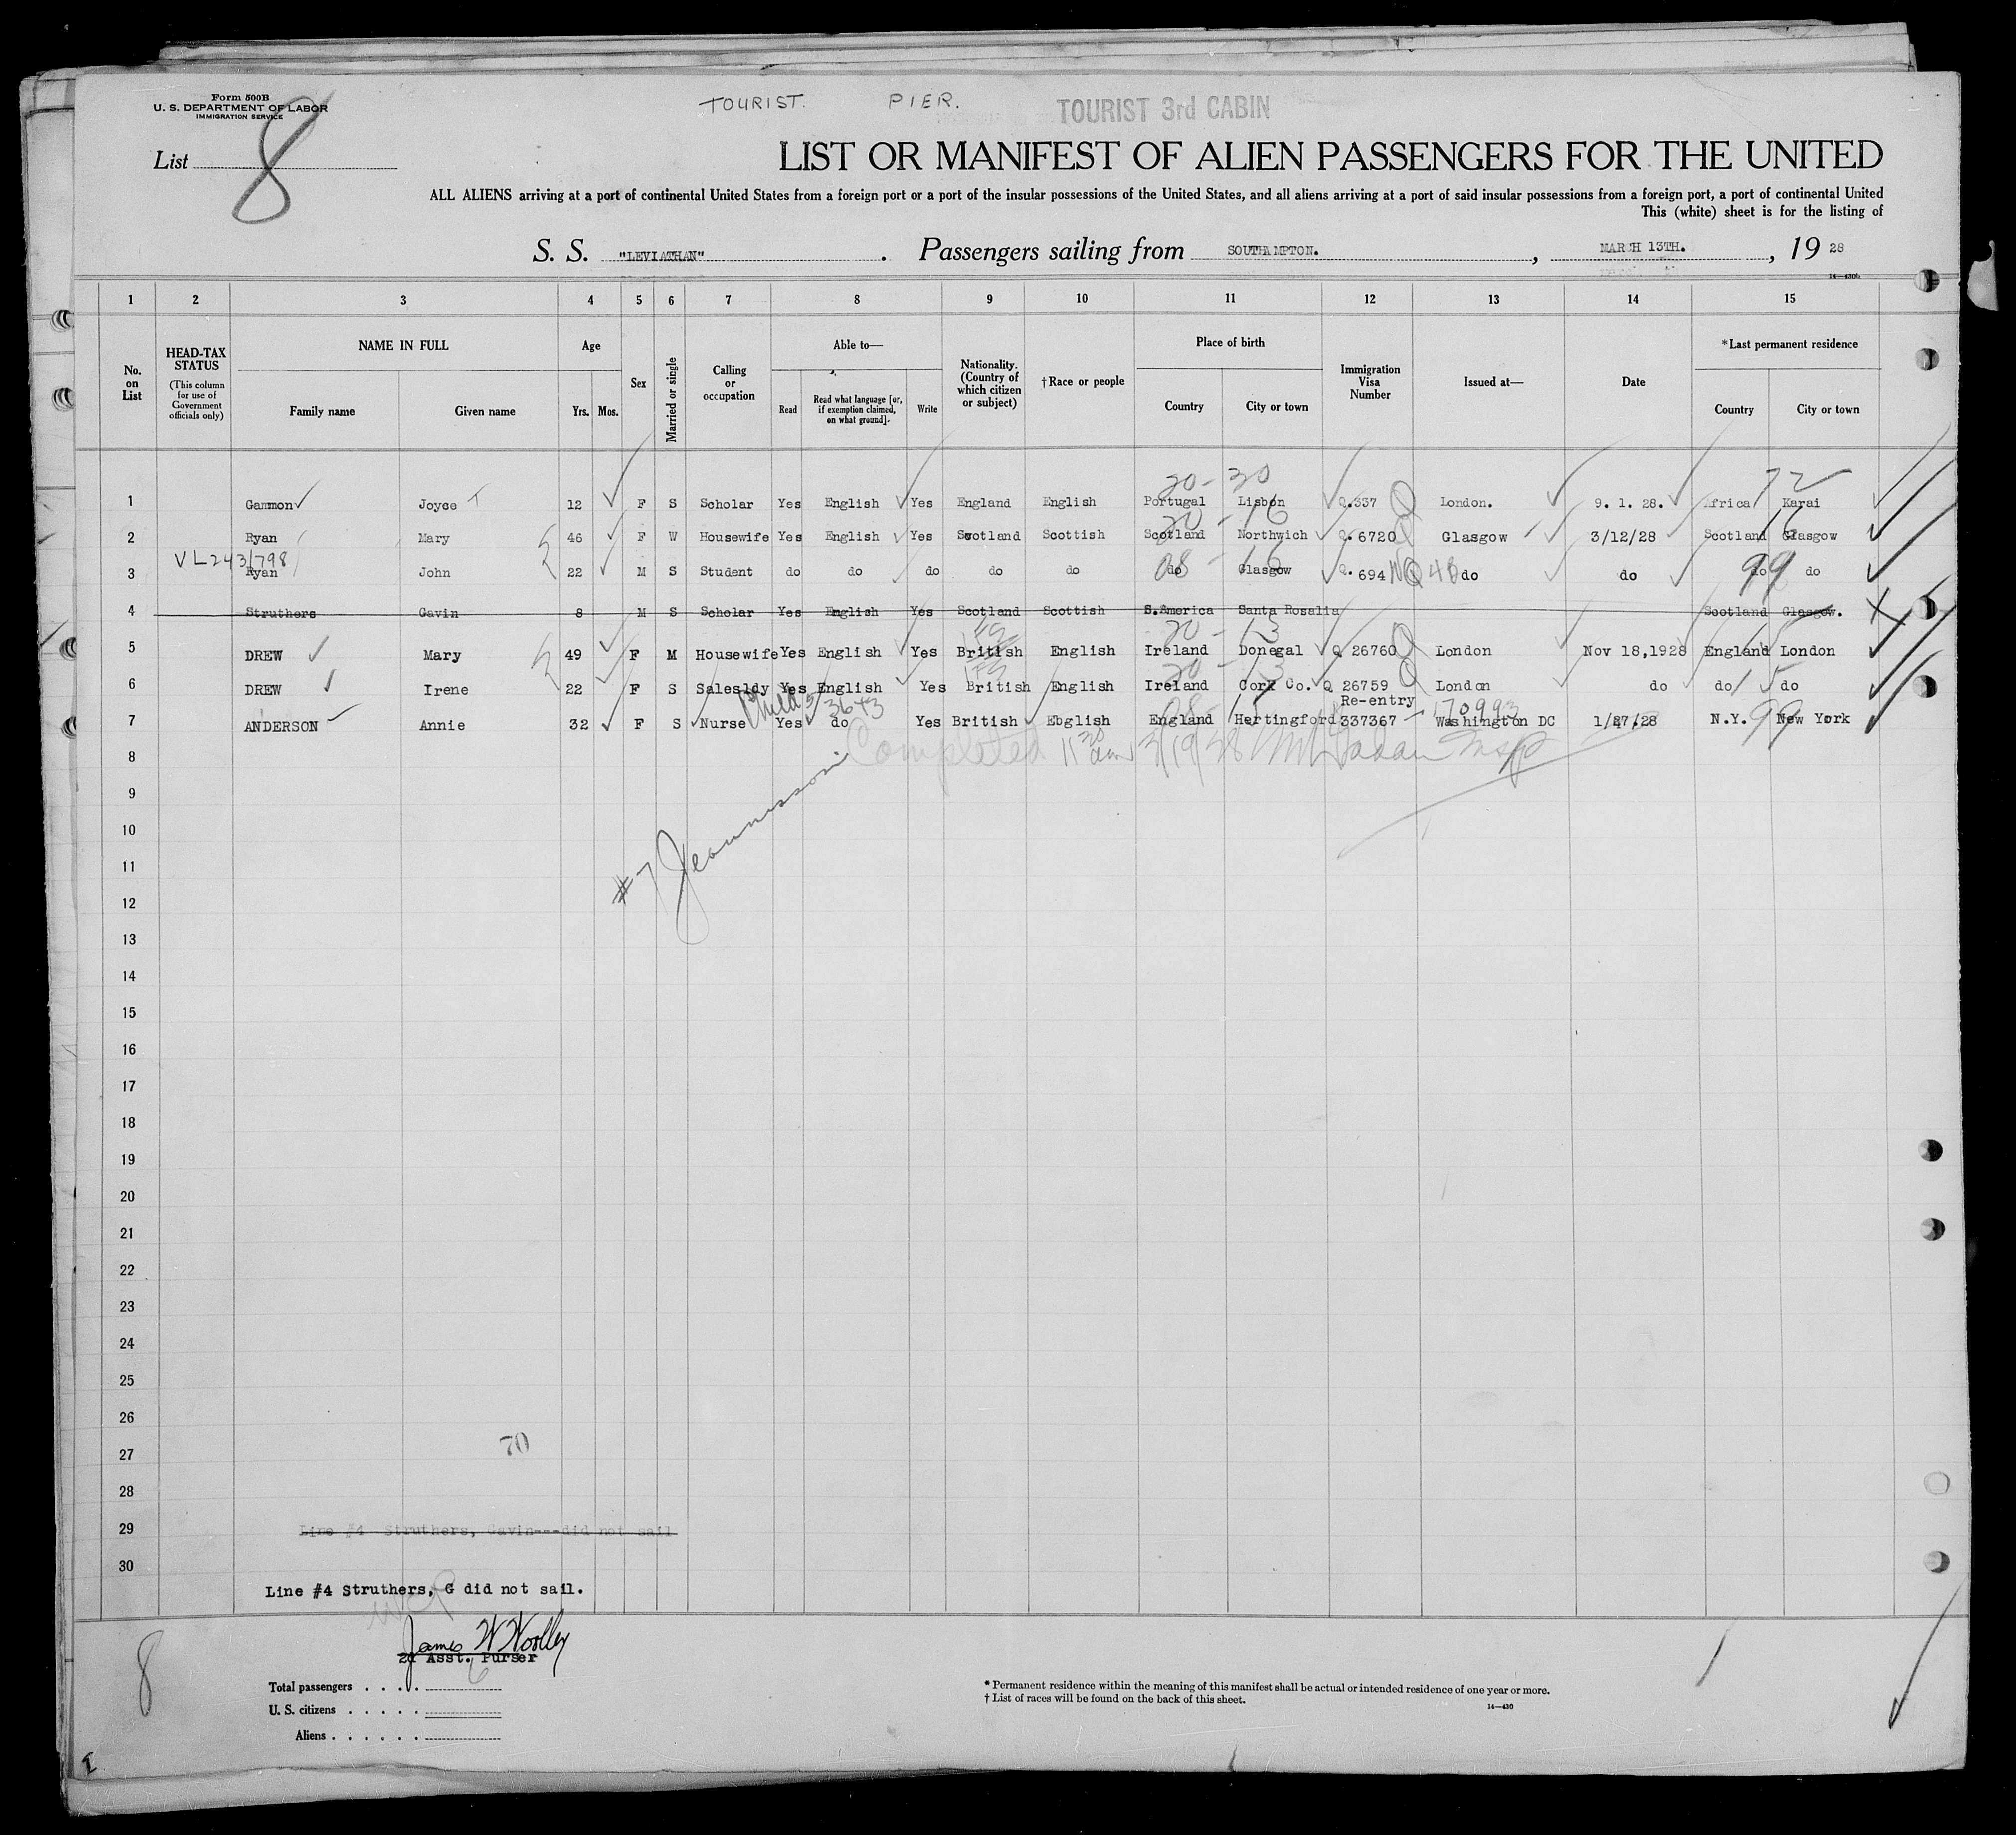 Form 500B
U. S. DEPARTMENT OF LABOR
IMMIGRATION SERVICE
TOURIST. PIER. TOURIST 3rd CABIN
List 8
LIST OR MANIFEST OF ALIEN PASSENGERS FOR THE UNITED
ALL ALIENS arriving at a port of continental United States from a foreign port or a port of the insular possessions of the United States, and all aliens arriving at a port of said insular possessions from a foreign port, a port of continental United
This (white) sheet is for the listing of
S. S. "LEVIATHAN". Passengers sailing from SOUTHAMPTON., MARCH 13TH., 1928
1 2 3 4 5 6 7 8 9 10 11 12 13 14 15
No. on List
HEAD-TAX STATUS
(This column for use of Government officials only)
NAME IN FULL
Family name Given name
Age
Yrs. Mos.
Sex
Married or single
Calling or occupation
Able to—
Read
Read what language [or, if exemption claimed, on what ground].
Write
Nationality. (Country of which citizen or subject)
†Race or people
Place of birth
Country City or town
Immigration Visa Number
Issued at—
Date
*Last permanent residence
Country City or town
20-30 72
1 Gammon Joyce 12 F S Scholar Yes English Yes England English Portugal Lisbon Q.337 Q London. 9. 1. 28. Africa Karai
20-16 16
2 Ryan Mary 46 F W Housewife Yes English Yes Scotland Scottish Scotland Northwich Q.6720 Q Glasgow 3/12/28 Scotland Glasgow
VL243/798
08-16 99
3 Ryan John 22 M S Student do do do do do do Glasgow Q.694 NQ 40 do do do do
4 Struthers Gavin 8 M S Scholar Yes English Yes Scotland Scottish S.America Santa Rosalia Scotland Glasgow.
20-13 15
5 DREW Mary 49 F M Housewife Yes English Yes British English Ireland Donegal Q 26760 Q London Nov 18,1928 England London
20-13 15
6 DREW Irene 22 F S Salesldy Yes English Yes British English Ireland Cork Co. Q 26759 Q London do do do
Re-entry
Child's 3643 08-15 170993 99
7 ANDERSON Annie 32 F S Nurse Yes do Yes British Ebglish England Hertingford 337367 Washington DC 1/27/28 N.Y. New York
8 Completed 11 30 am 3/19/28 Insp
9
10
11
#7
12
13
14
15
16
17
18
19
20
21
22
23
24
25
26
27 70
28
29 Line #4 Struthers, Gavin---did not sail
30
Line #4 Struthers, G did not sail.
James W Woolley
2d Asst. Purser
8
Total passengers . . . . 6
U. S. citizens . . . . .
Aliens . . . . . .
* Permanent residence within the meaning of this manifest shall be actual or intended residence of one year or more.
† List of races will be found on the back of this sheet.
14—430